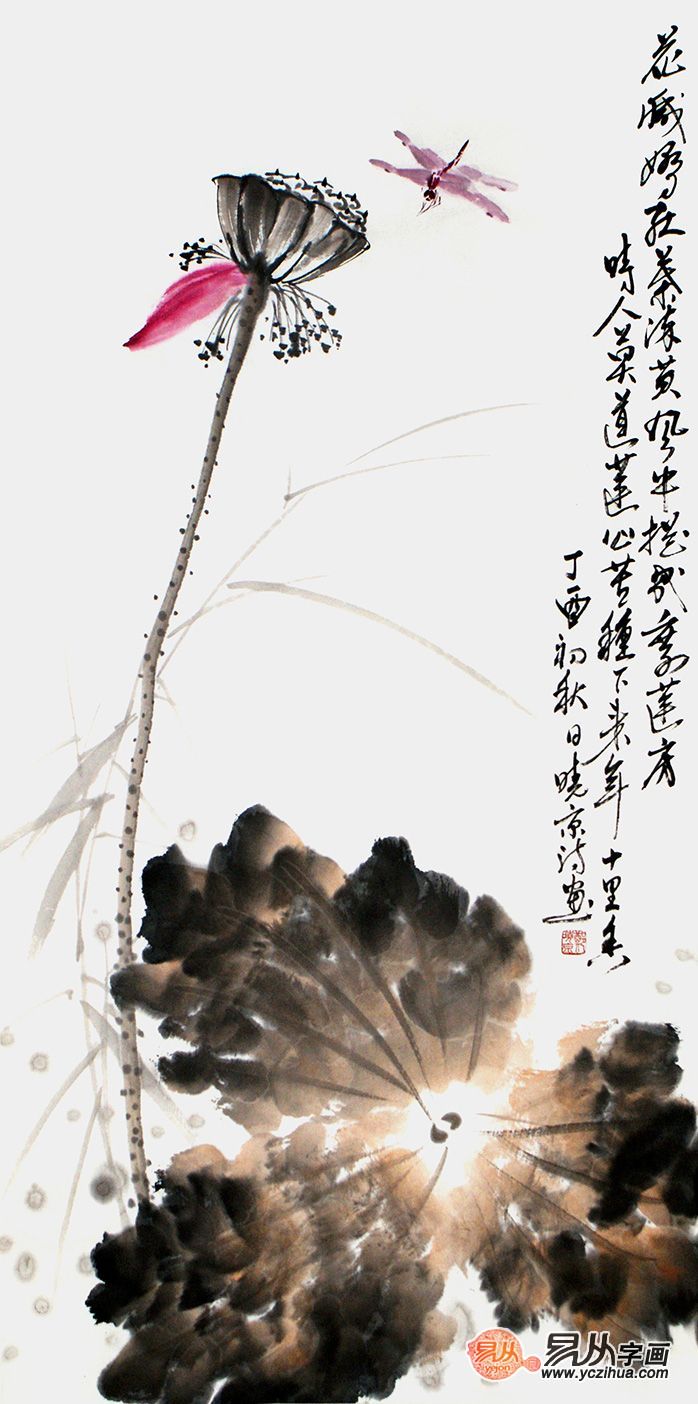 花减娇葉添黄风中摇曳莲房
時人莫道莲心苦種下来年十里香
丁酉初秋日晓京诗画
易从
yejon
易从字画
www.yczihua.com